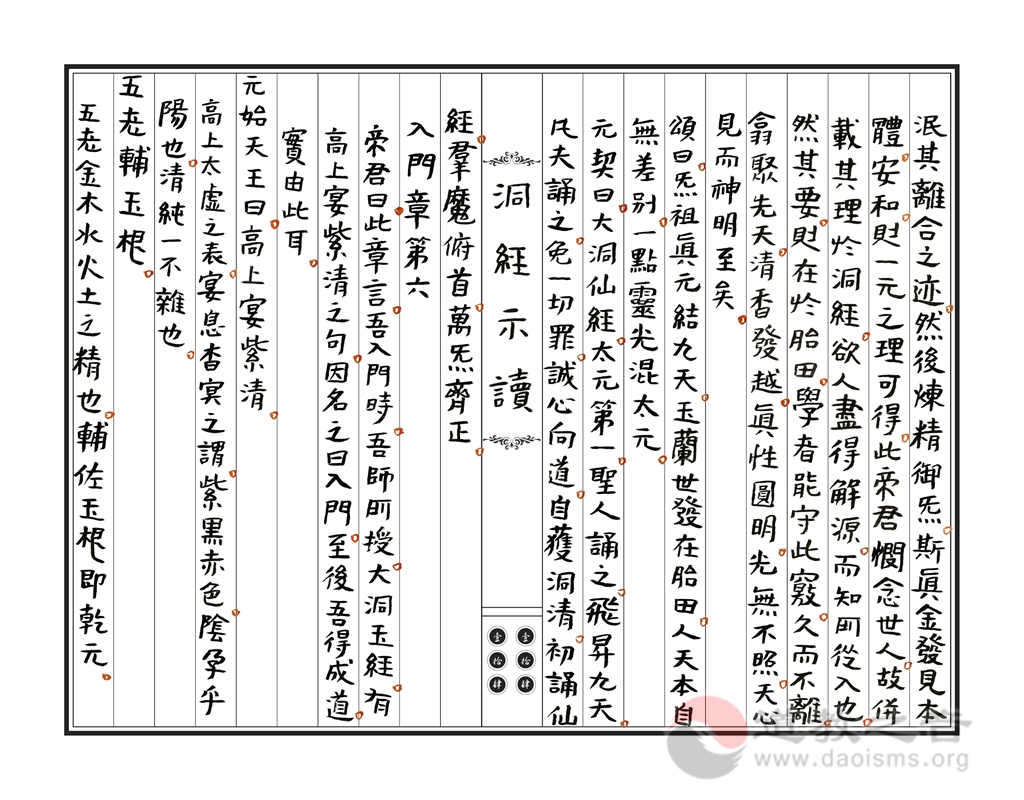 泯其離合之迹然後煉精御炁斯眞金發見本
體安和則一元之理可得此帝君憫念世人故併
載其理於洞經欲人盡得解源而知所從入也
然其要則在於胎田學者能守此竅久而不離
翕聚先天清香發越眞性圓明光無不照天心
見而神明至矣
頌曰炁祖眞元結九天玉蘭世發在胎田人天本自
無差别一點靈光混太元
元契曰大洞仙經太元第一聖人誦之飛昇九天
凡夫誦之免一切罪誠心向道自獲洞清初誦仙
洞經示讀
壹 壹
拾 拾
肆 肆
經羣魔俯首萬炁齊正
入門章第六
帝君曰此章言吾入門時吾師所授大洞玉經有
高上宴紫清之句因名之曰入門至後吾得成道
實由此耳
元始天王曰高上宴紫清
高上太虛之表宴息杳冥之謂紫黒赤色陰孕乎
陽也清純一不雜也
五老輔玉根
五老金木水火土之精也輔佐玉根即乾元
道教之音
www.daoisms.org